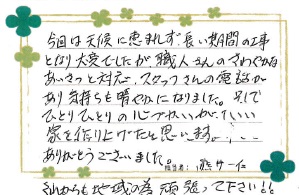 今回は天候に恵まれず、長い期間の工事
となり大変でしたが職人さんのさわやかな
あいさつと対応、スタッフさんの電話が
あり気持ちも晴やかになりました。
ひとりひとりの心づかいが、いい
家を作り上げたと思います。
ありがとうございました。
担当者：
これからも地域の為頑張って下さい